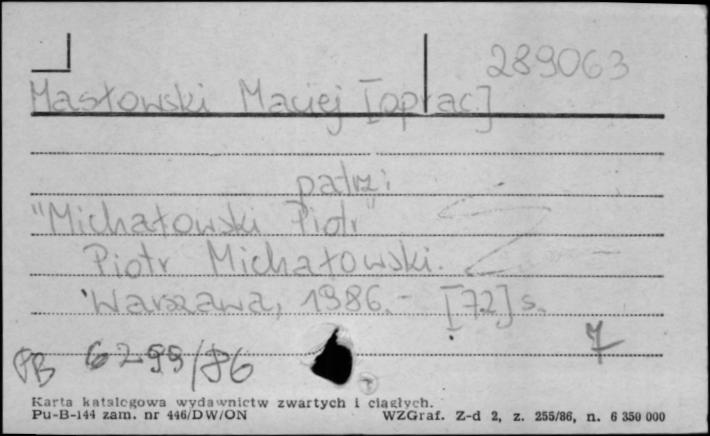 289063
Masłowski Maciej [oprac]
patrz:
"Michałowski Piotr"
Piotr Michałowski.
Warszawa, 1986.- [72] s.
7
PB 6299/86
Karta katalogowa wydawnictw zwartych i ciągłych.
Pu-B-144 zam. nr 446/DW/ON WZGraf. Z-d 2, z. 255/86, n. 6 350 000